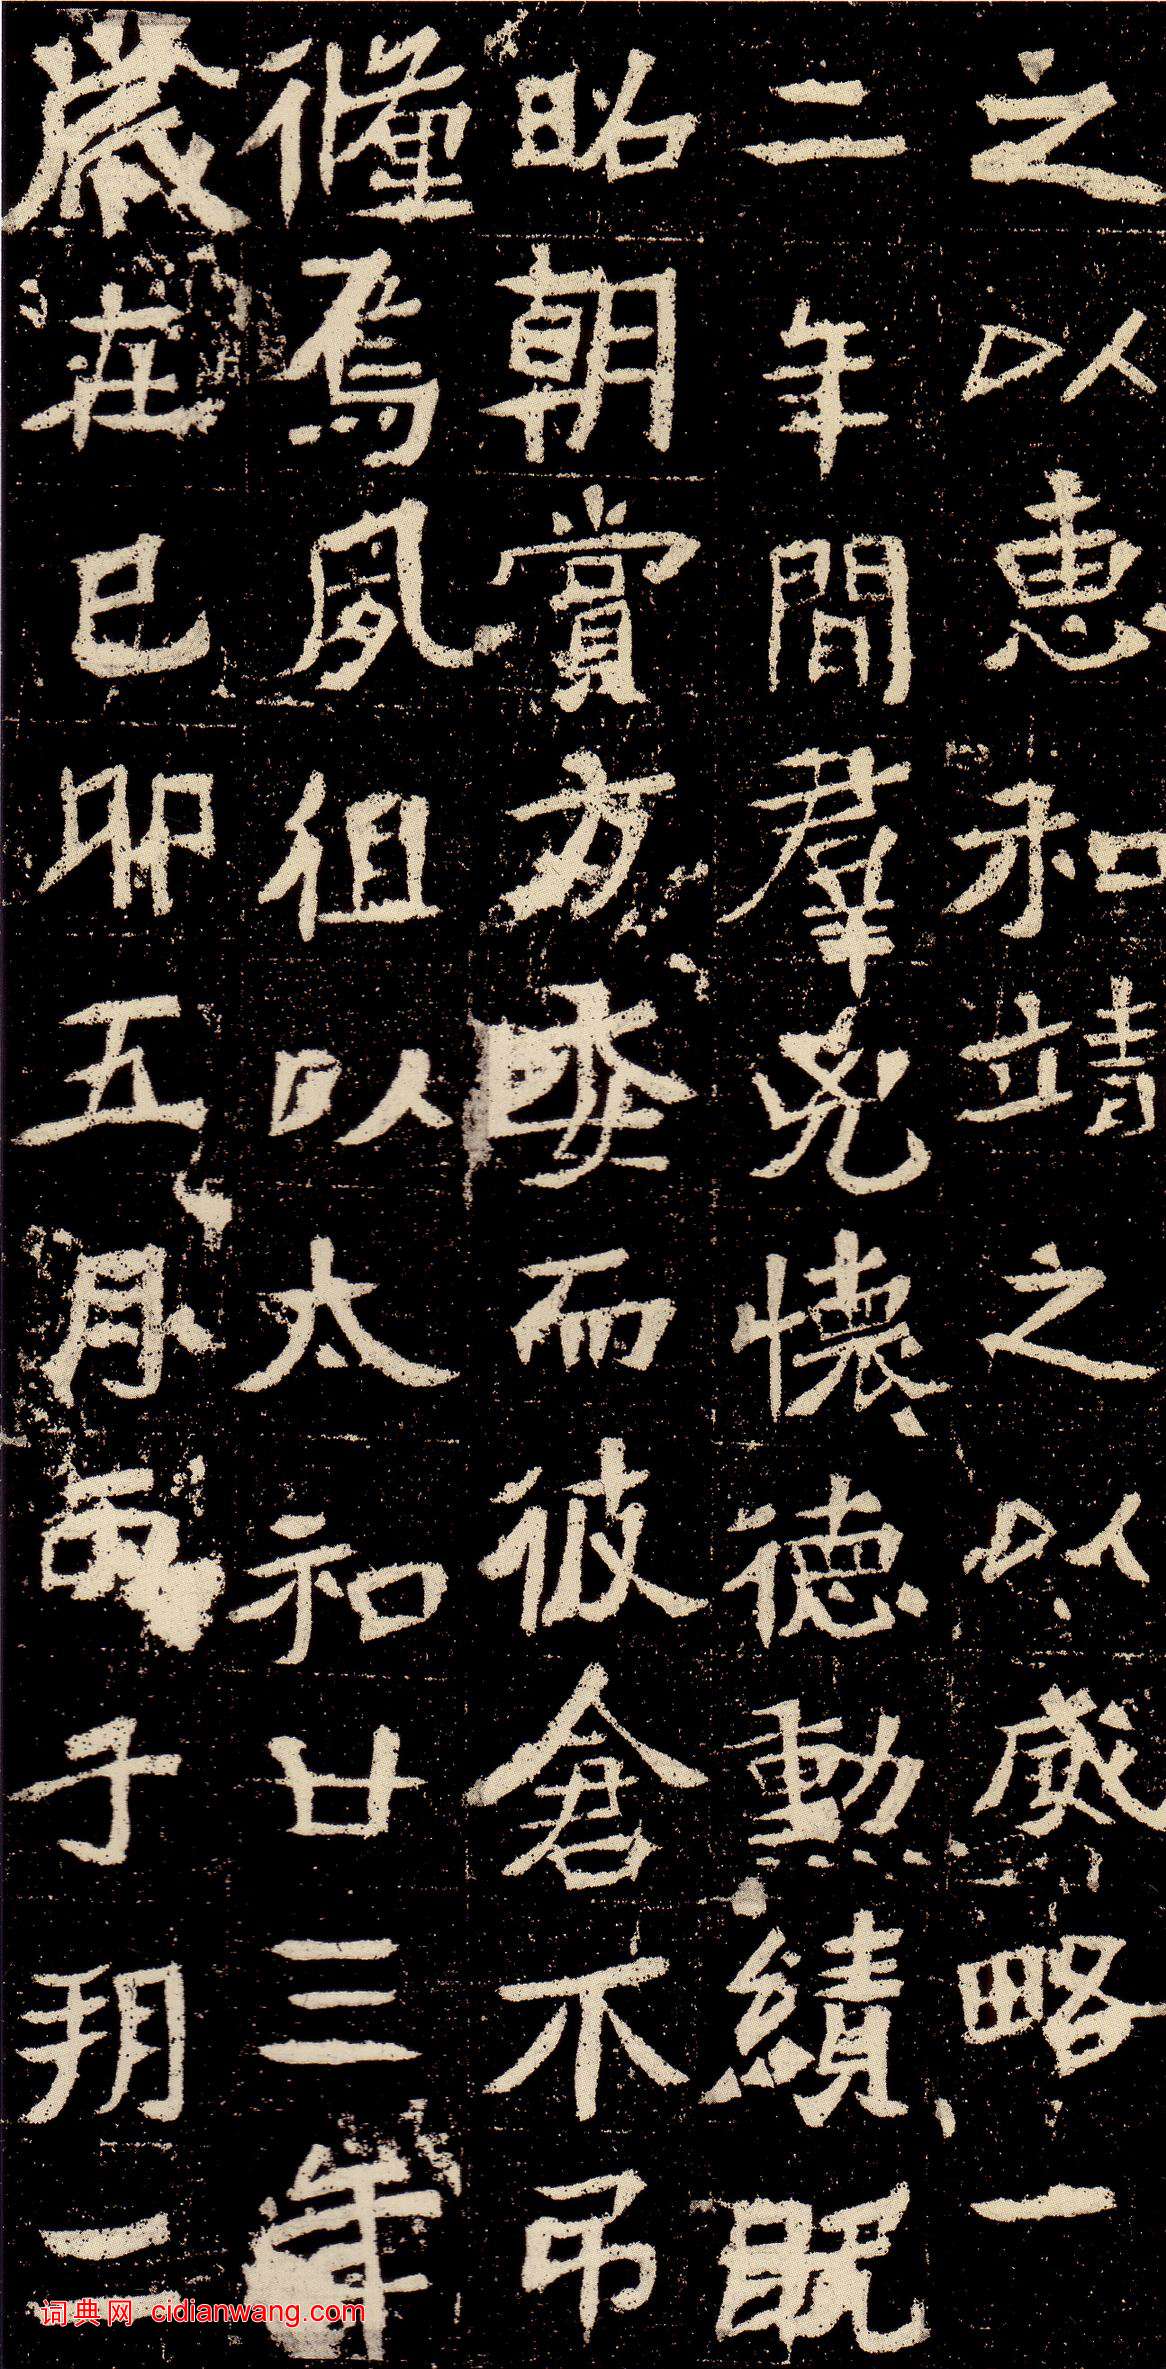 之以惠和靖之以威略一
二年間羣兇懷德勳績既
昭朝賞方委而彼倉不弔
焉夙徂以太和廿三年
歲在己卯五月丙子朔二
词典网 cidianwang.com